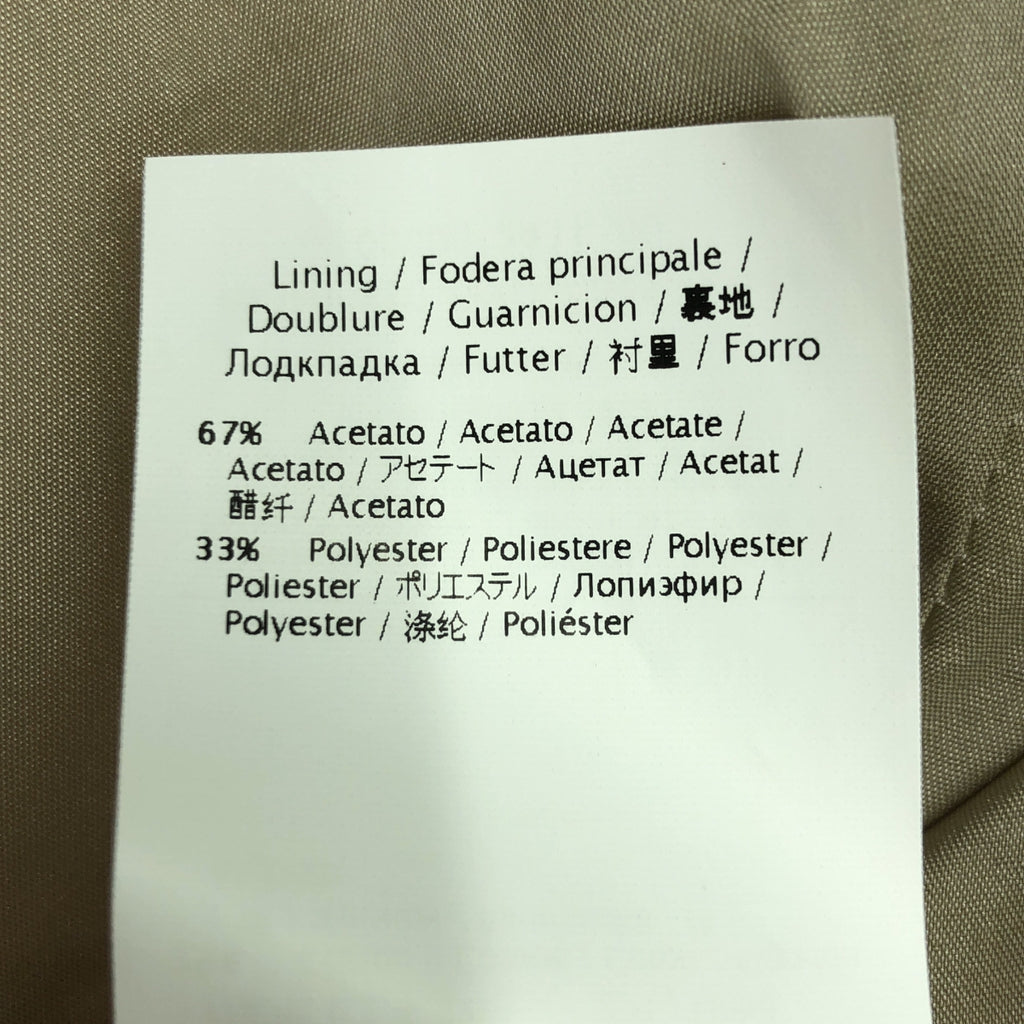 Lining / Fodera principale /
Doublure / Guarnicion / 裏地 /
Лодкпадка / Futter / 衬里 / Forro
67% Acetato / Acetato / Acetate /
Acetato / アセテート / Ацетат / Acetat /
醋纤 / Acetato
33% Polyester / Poliestere / Polyester /
Poliester / ポリエステル / Лопиэфир /
Polyester / 涤纶 / Poliéster